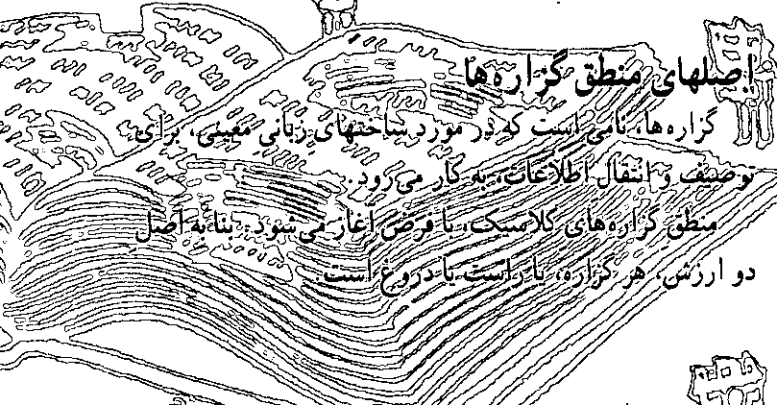 اصلهای منطق گزاره‌ها
گزاره‌ها، نامی است که در مورد ساختهای زبانی معینی، برای
توصیف و انتقال اطلاعات، به کار می‌رود.
منطق گزاره‌های کلاسیک، با فرض آغاز می‌شود. بنا به اصل
دو ارزش، هر گزاره، یا راست یا دروغ است.